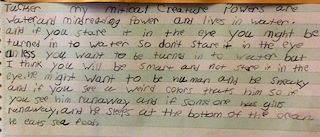 Tusker my mitical creature Powers are
water and mindreading Power and lives in water.
and if you stare it in the eye you might be
turned in to water so dont stare it in the eye
unless you want to be turned in to water but
I think you will be smart and not stare it in the
eye. he might want to be human and be sneaky
and if you see a weird cores thats him so if
you see him runaway and if some one has gills
runaway and he sleeps at the bottom of the ocean
he eats sea food.